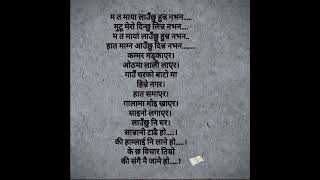 म त माया लाउँछु हुन्न नभन.....
मुटू मेरो दिन्छु लिन्न नभन....
म त मायां लाउँछु हुन्न नभन..
हात माग्न आउँछु दिन्न नभन........
कम्मर मड्काएर।
ओठमा लाली लाएर।
गाउँ घरको बाटो मा
हिन्ने नगर।
हात समाएर।
गालामा मोइ खाएर।
साइनो लगाएर।
लाउँछु नि घर।
सान्नानी टाढै हो.....।
की हाम्लाई नि लाने हो.....।
के छ विचार तिम्रो
की संगै नै जाने हो.....।